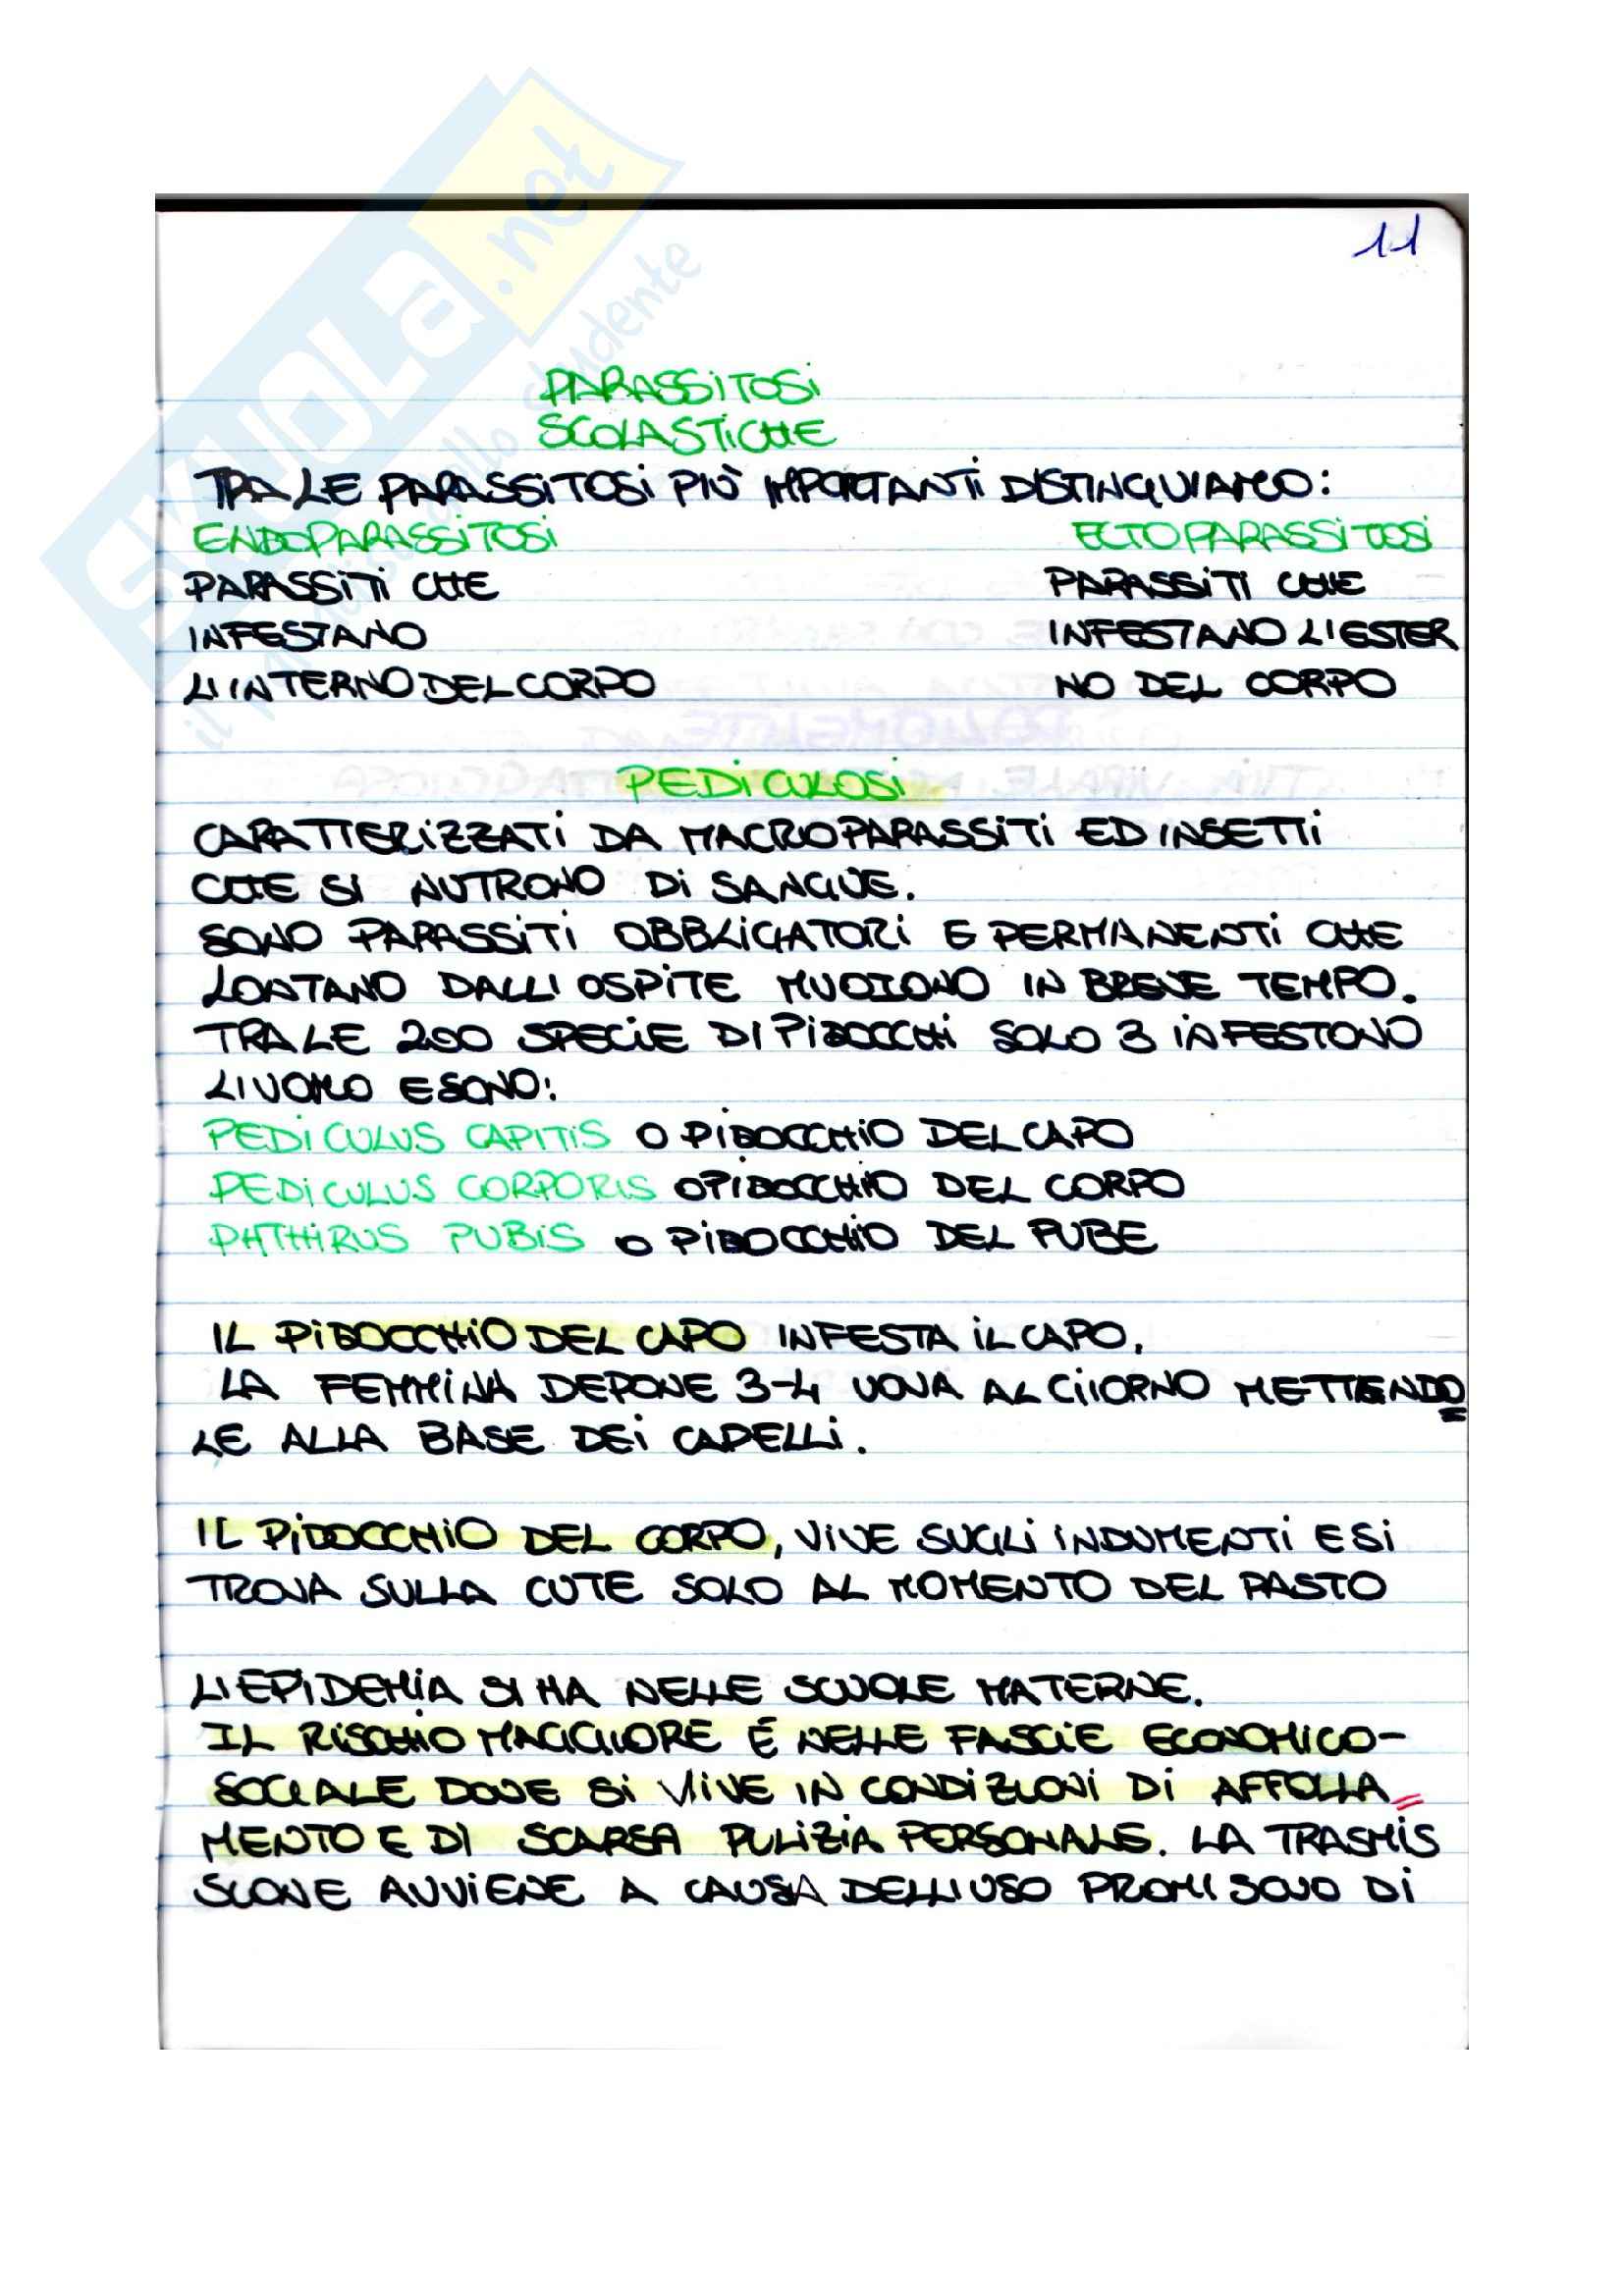 SKUOLA.net
il paradiso dello studente
11
PARASSITOSI
SCOLASTICHE
TRA LE PARASSITOSI PIÙ IMPORTANTI DISTINGUIAMO:
ENDOPARASSITOSI ECTOPARASSITOSI
PARASSITI CHE PARASSITI CHE
INFESTANO INFESTANO L'ESTER
L'INTERNO DEL CORPO NO DEL CORPO
PEDICULOSI
CARATTERIZZATI DA MACROPARASSITI ED INSETTI
CHE SI NUTRONO DI SANGUE.
SONO PARASSITI OBBLIGATORI E PERMANENTI CHE
LONTANO DALL'OSPITE MUOIONO IN BREVE TEMPO.
TRA LE 200 SPECIE DI PIDOCCHI SOLO 3 INFESTONO
L'UOMO E SONO:
PEDICULUS CAPITIS O PIDOCCHIO DEL CAPO
PEDICULUS CORPORIS O PIDOCCHIO DEL CORPO
PHTHIRUS PUBIS O PIDOCCHIO DEL PUBE
IL PIDOCCHIO DEL CAPO INFESTA IL CAPO.
LA FEMMINA DEPONE 3-4 UOVA AL GIORNO METTENDO=
LE ALLA BASE DEI CAPELLI.
IL PIDOCCHIO DEL CORPO, VIVE SUGLI INDUMENTI E SI
TROVA SULLA CUTE SOLO AL MOMENTO DEL PASTO
L'EPIDEMIA SI HA NELLE SCUOLE MATERNE.
IL RISCHIO MAGGIORE É NELLE FASCIE ECONOMICO-
SOCIALE DOVE SI VIVE IN CONDIZIONI DI AFFOLLA=
MENTO E DI SCARSA PULIZIA PERSONALE. LA TRASMIS
SIONE AVVIENE A CAUSA DELL'USO PROMISCUO DI